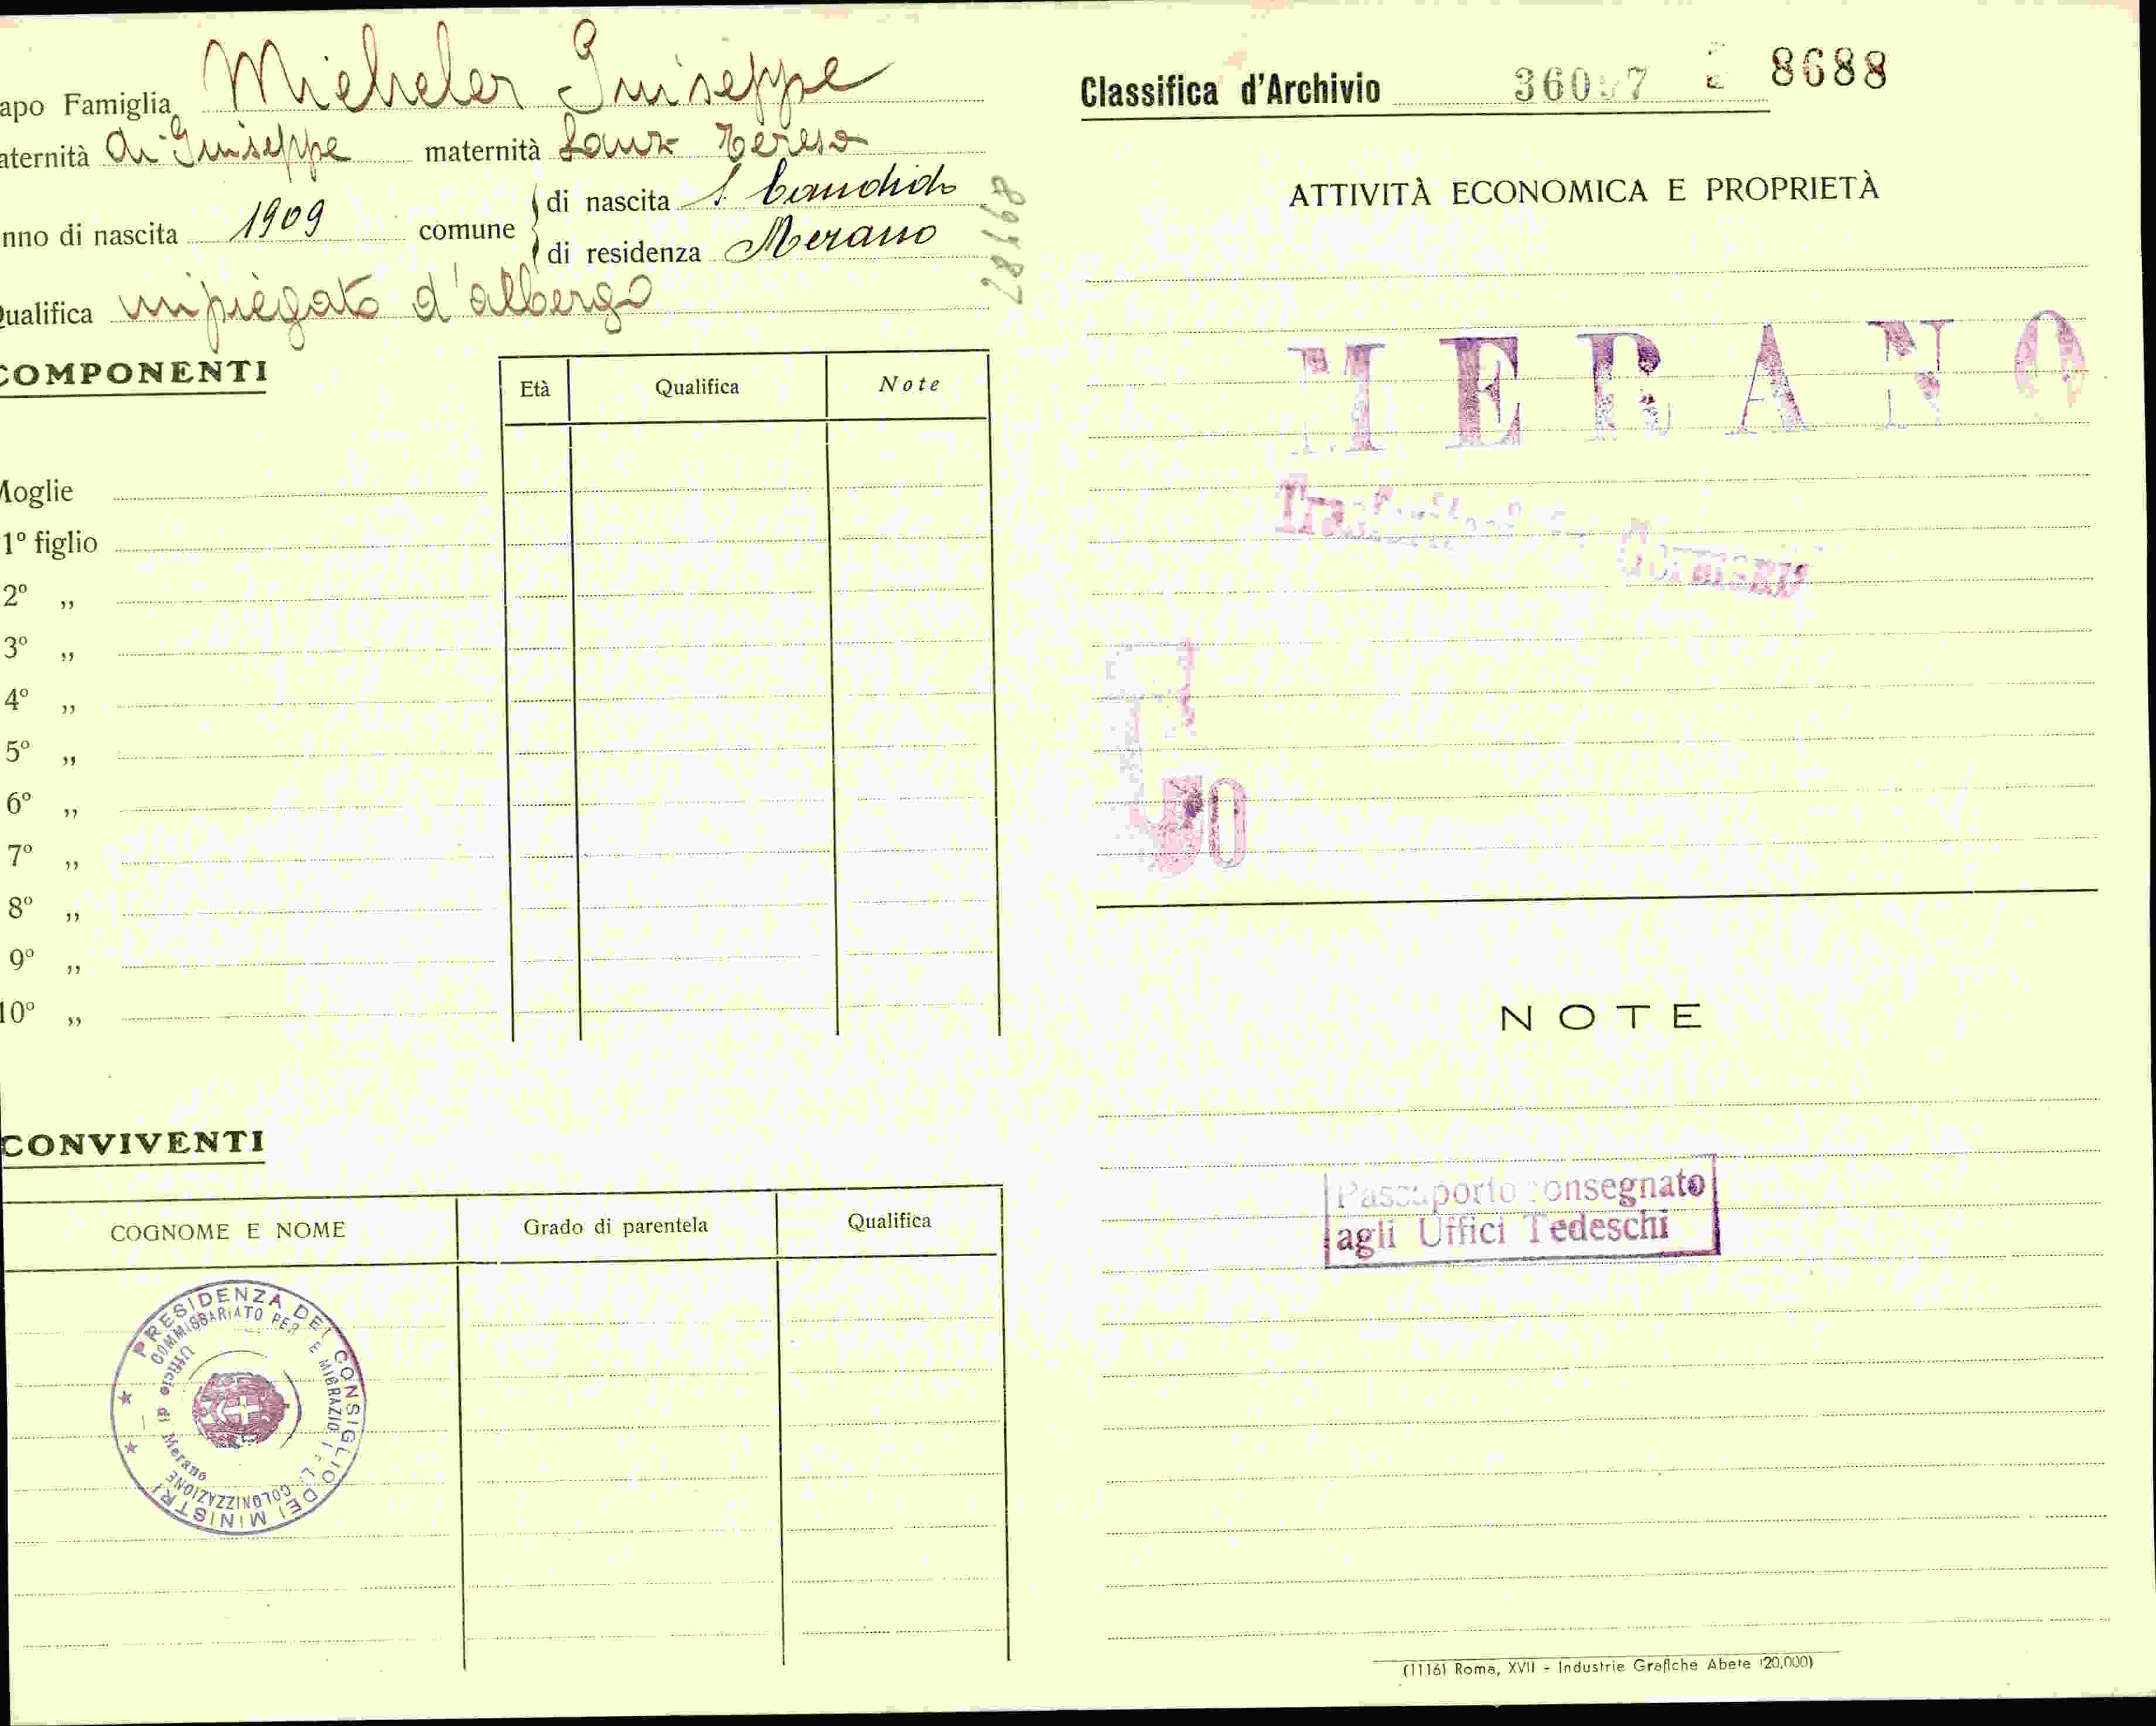 apo Famiglia Micheler Giuseppe
aternità di Giuseppe maternità Lanz Teresa
nno di nascita 1909 comune di nascita S. Candido
di residenza Merano
Qualifica impiegato d'albergo
COMPONENTI
Età Qualifica Note
Moglie
1º figlio
2º „
3º „
4º „
5º „
6º „
7º „
8º „
9º „
10º „
CONVIVENTI
COGNOME E NOME Grado di parentela Qualifica
PRESIDENZA DEL CONSIGLIO DEI MINISTRI
COMMISSARIATO PER E MIGRAZIO E LA COLONIZZAZIONE
Ufficio di Merano
Classifica d'Archivio 8688
ATTIVITÀ ECONOMICA E PROPRIETÀ
MERANO
Germania
NOTE
Passaporto consegnato
agli Uffici Tedeschi
(1116) Roma, XVII - Industrie Grafiche Abete (20.000)